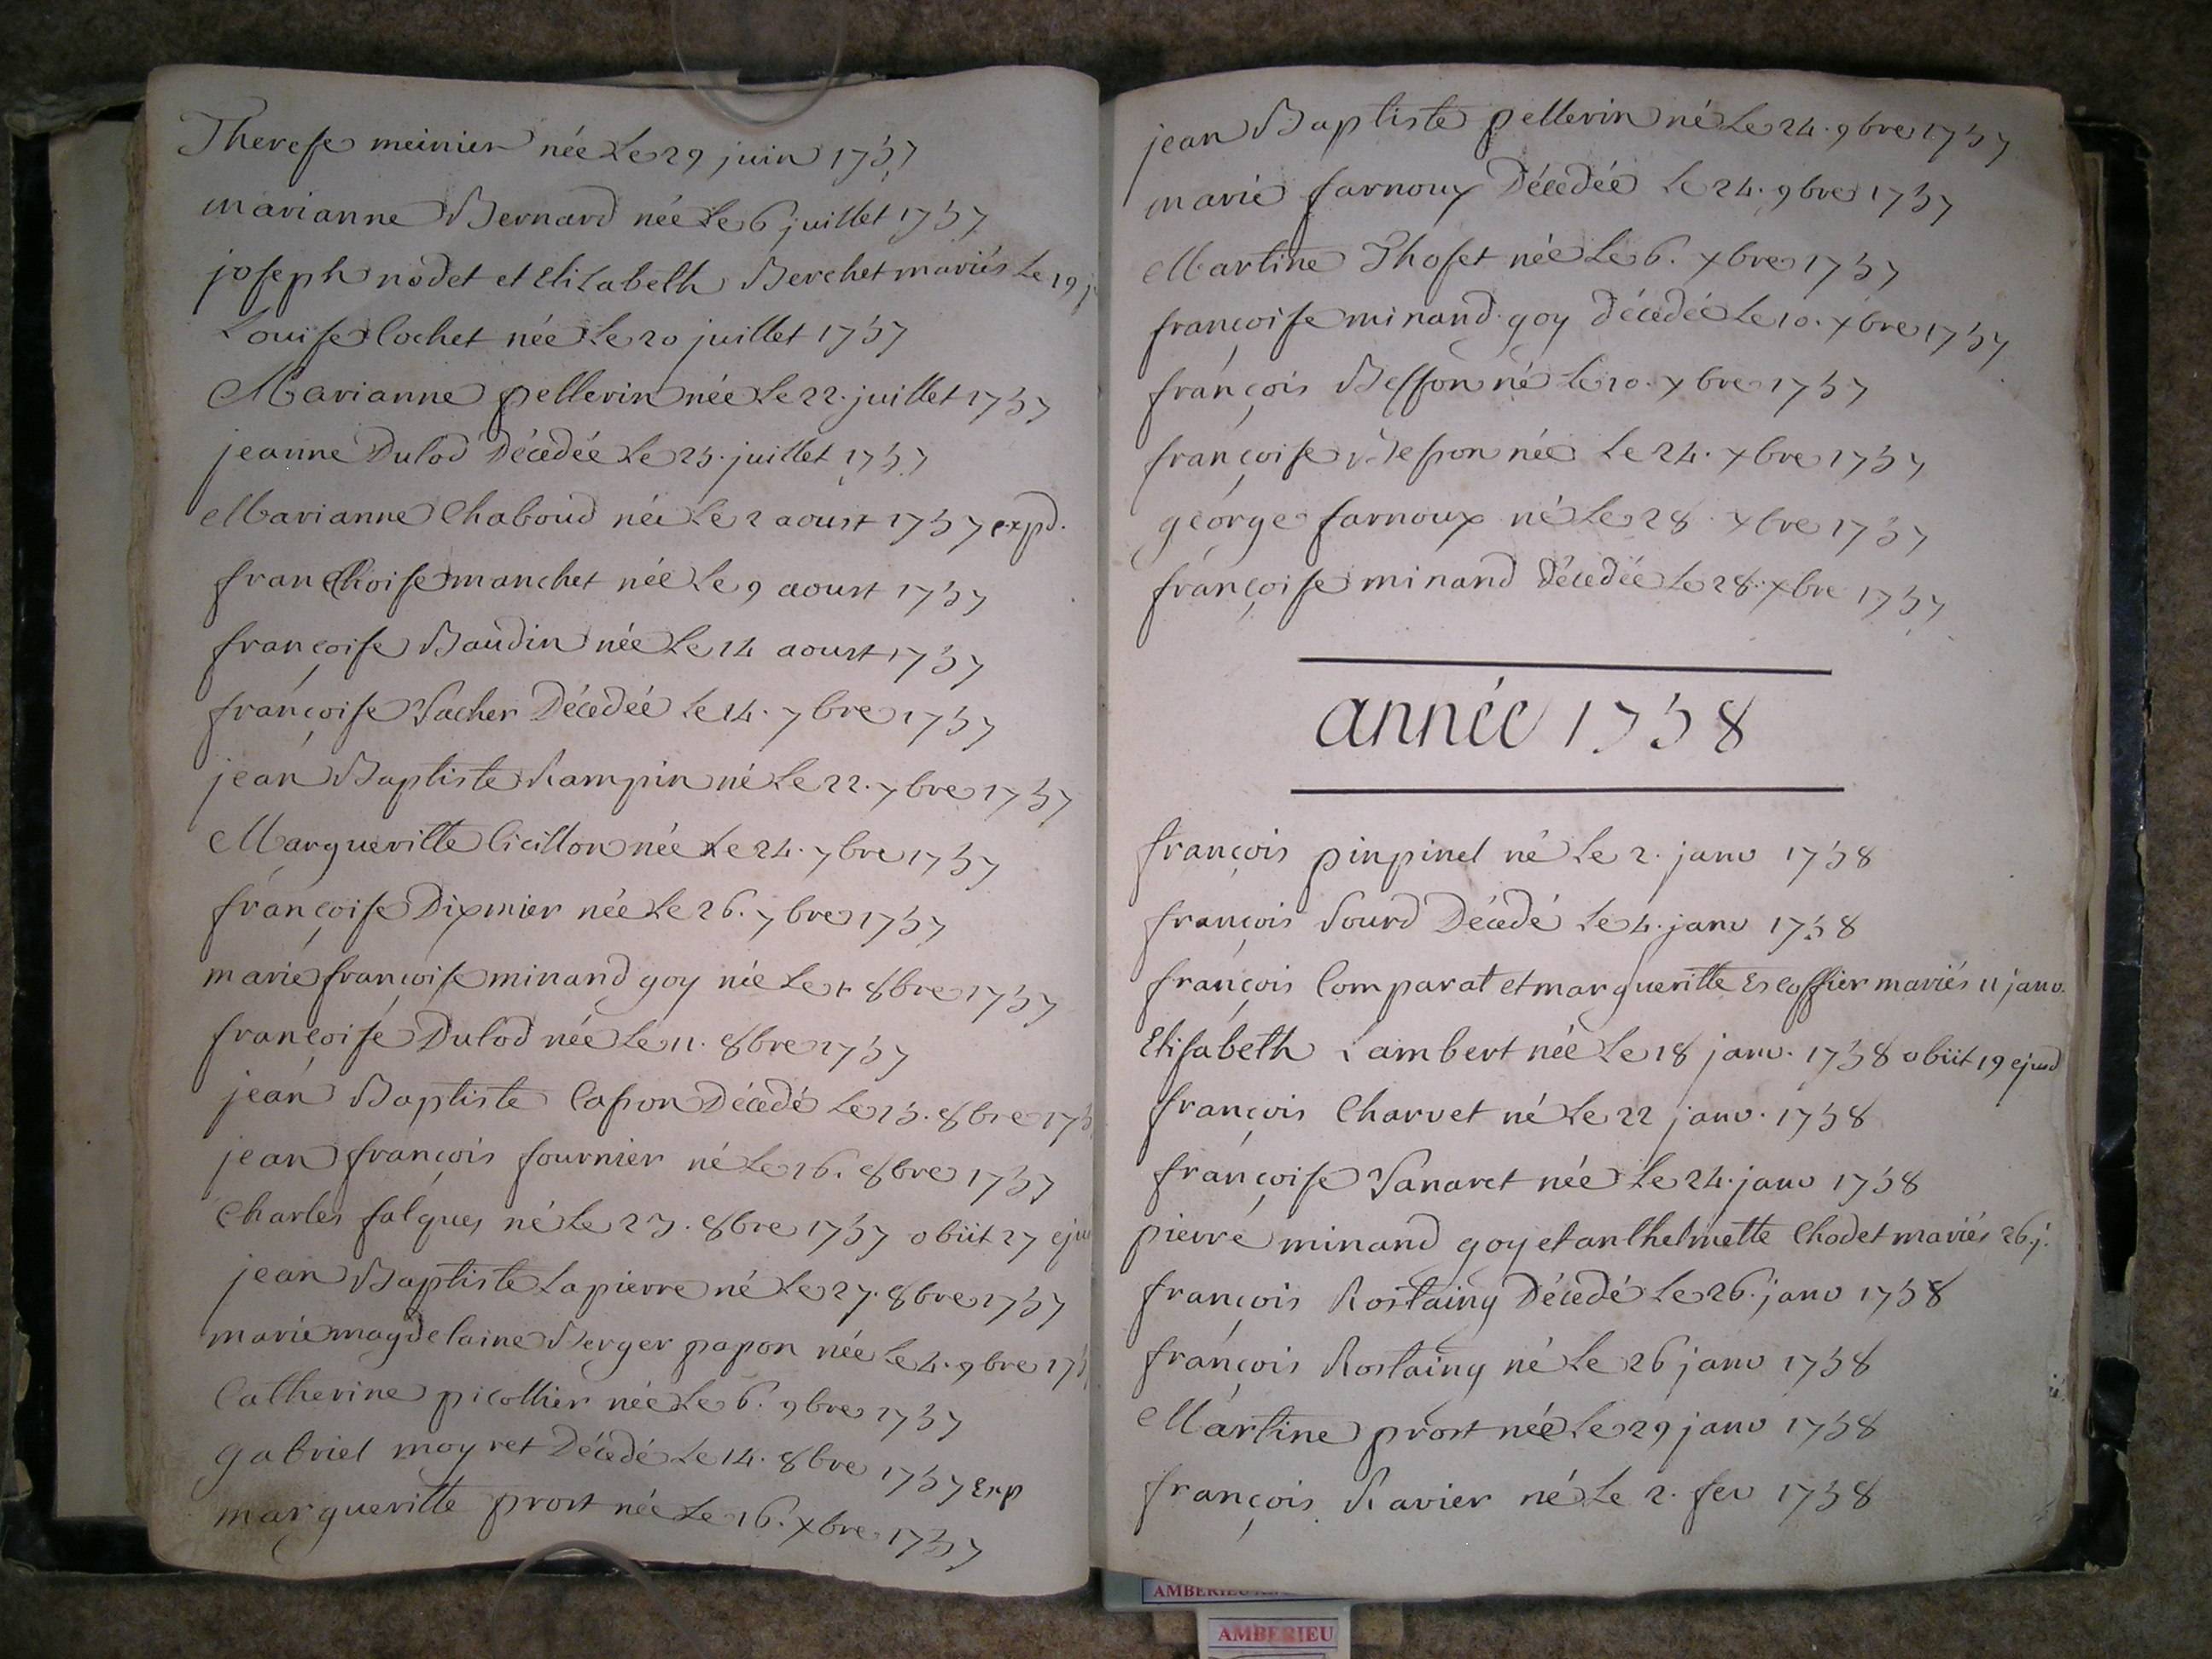 Therese meinier née Le 29 juin 1737
marianne Bernard née Le 6 juillet 1737
joseph nodet et Elizabeth Berchet mariés Le 19 j
Louise Cochet née Le 20 juillet 1737
Marianne pellerin née Le 22. juillet 1737
jeanne Dulod Décedée Le 25. juillet 1737
Marianne Chaboud née Le 2 aoust 1737 expd.
franchoise manchet née Le 9 aoust 1737
françoise Baudin née Le 14 aoust 1737
françoise Vacher Décedée Le 14. 7bre 1737
jean Baptiste Rampin né Le 22. 7bre 1737
Margueritte Cicillon née Le 24. 7bre 1737
françoise Dixmier née Le 26. 7bre 1737
marie françoise minand goy née Le 8bre 1737
françoise Dulod née Le 11. 8bre 1737
jean Baptiste Casson Décedé Le 23. 8bre 173
jean françois fournier né Le 26. 8bre 1737
Charles falques né Le 27. 8bre 1737 obiit 27 eju
jean Baptiste Lapierre né Le 27. 8bre 1737
marie magdelaine Berger papon née Le 4. 9bre 173
Catherine picollier née Le 6. 9bre 1737
gabriel moyret Décedé Le 14. 8bre 1737 Exp
margueritte prost née Le 16. xbre 1737
jean Baptiste pellerin né Le 24. 9bre 1737
marie farnoux Décedée Le 24. 9bre 1737
Martine Thoset née Le 6. xbre 1737
françoise minand goy décédée Le 10. xbre 1737
françois Besson né Le 10. xbre 1737
françoise née Le 24. xbre 1737
george farnoux né Le 28 xbre 1737
françoise minand décedée Le 28. xbre 1737
année 1738
françois pinpinel né Le 2. janv 1738
françois Sourd Décedé Le 4. janv 1738
françois Comparat et margueritte Escoffier mariés 11 janv.
Elisabeth Lambert née Le 18 janv. 1738 obiit 19 ejusd
françois Charvet né Le 22 janv. 1738
françoise Vanaret née Le 24. janv 1738
pierre minand goy et anthelmette Chodet mariés 26. j.
françois Rostaing Décedé Le 26. janv 1738
françois Rostaing né Le 26 janv 1738
Martine prost née Le 29 janv 1738
françois Ravier né Le 2. fev 1738
AMBERIEU
AMBERIEU